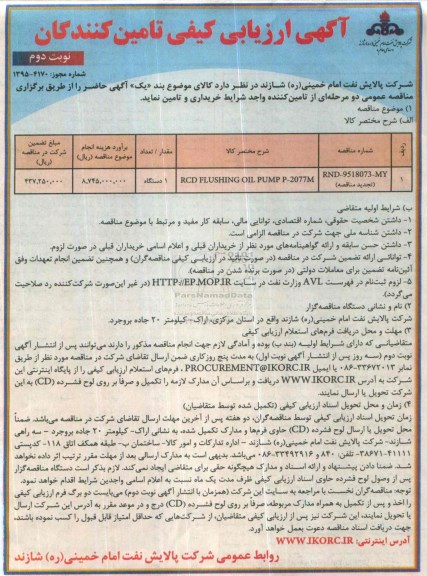 آگهی ارزیابی کیفی تامین‌کنندگان
نوبت دوم
شماره مجوز: ۱۳۹۵-۴۱۷۰
شرکت پالایش نفت امام خمینی(ره) شازند در نظر دارد کالای موضوع بند «یک» آگهی حاضر را از طریق برگزاری
مناقصه عمومی دو مرحله‌ای از تامین‌کننده واجد شرایط خریداری و تامین نماید.
۱) موضوع مناقصه
الف) شرح مختصر کالا
ردیف شماره مناقصه شرح مختصر کالا مقدار / تعداد برآورد هزینه انجام موضوع مناقصه (ریال) مبلغ تضمین شرکت در مناقصه (ریال)
۱ RND-9518073-MY (تجدید مناقصه) RCD FLUSHING OIL PUMP P-2077M ۱ دستگاه ۸,۷۴۵,۰۰۰,۰۰۰ ۴۳۷,۲۵۰,۰۰۰
ب) شرایط اولیه متقاضی
۱- داشتن شخصیت حقوقی، شماره اقتصادی، توانایی مالی، سابقه کار مفید و مرتبط با موضوع مناقصه.
۲- داشتن شناسه ملی جهت شرکت در مناقصه الزامی است.
۳- داشتن حسن سابقه و ارائه گواهینامه‌های مورد نظر از خریداران قبلی و اعلام اسامی خریداران قبلی در صورت لزوم.
۴- توانائی ارائه تضمین شرکت در مناقصه (در صورت تائید در ارزیابی کیفی مناقصه‌گران) و همچنین تضمین انجام تعهدات وفق
آئین‌نامه تضمین برای معاملات دولتی (در صورت برنده شدن در مناقصه).
۵- لزوم ثبت‌نام در فهرست AVL وزارت نفت در سایت HTTP://EP.MOP.IR (در غیر این‌صورت شرکت‌کننده رد صلاحیت
می‌گردد).
۲) نام و نشانی دستگاه مناقصه‌گزار
شرکت پالایش نفت امام خمینی(ره) شازند واقع در استان مرکزی، اراک- کیلومتر ۲۰ جاده بروجرد.
۳) مهلت و محل دریافت فرم‌های استعلام ارزیابی کیفی
متقاضیانی که دارای شرایط اولیه (بند ب) بوده و آمادگی لازم جهت انجام مناقصه مذکور را دارند می‌توانند پس از انتشار آگهی
نوبت دوم (سه روز پس از انتشار آگهی نوبت اول) به مدت پنج روزکاری ضمن ارسال تقاضای شرکت در مناقصه مورد نظر از طریق
نمابر ۳۳۶۷۲۰۱۳-۰۸۶ یا ایمیل PROCUREMENT@IKORC.IR، فرم‌های استعلام ارزیابی کیفی را از پایگاه اینترنتی این
شرکت به آدرس WWW.IKORC.IR دریافت و براساس آن مدارک لازمه را تکمیل و صرفاً بر روی لوح فشرده (CD) به این
شرکت تحویل یا ارسال نمایند.
۴) زمان و محل تحویل اسناد ارزیابی کیفی (تکمیل شده توسط متقاضیان)
زمان تحویل اسناد ارزیابی کیفی توسط مناقصه‌گران، دو هفته پس از آخرین مهلت ارسال تقاضای شرکت در مناقصه می‌باشد. ضمناً
محل تحویل یا ارسال لوح فشرده (CD) حاوی فرم‌ها و مدارک تکمیل شده، به نشانی اراک- کیلومتر ۲۰ جاده بروجرد - سه راهی
شازند- شرکت پالایش نفت امام خمینی(ره) شازند - اداره تدارکات و امور کالا- ساختمان ب- طبقه همکف اتاق ۱۱۸- کدپستی
۴۱۱۱۱-۳۸۶۷۱، تلفن: ۸۴۰ و ۳۳۴۹۲۹۱۶-۰۸۶ می‌باشد. بدیهی است به مدارک ارسالی بعد از مهلت مقرر ترتیب اثر داده نخواهد
شد. ضمناً دادن پیشنهاد و ارائه اسناد و مدارک هیچگونه حقی برای متقاضی ایجاد نمی‌کند. لازم بذکر است دستگاه مناقصه‌گزار
پس از وصول لوح فشرده حاوی اسناد ارزیابی کیفی ظرف مدت یک ماه نسبت به اعلام اسامی واجدین شرایط اقدام خواهد نمود.
توجه: مناقصه‌گران نخست با مراجعه به سایت این شرکت (همزمان با انتشار آگهی نوبت دوم) می‌بایست دو برگ فرم ارزیابی کیفی
را اخذ و پس از تکمیل به همراه مدارک مربوطه، صرفاً بر روی لوح فشرده (CD) درج و در موعد مقرر به آدرس این شرکت ارسال
یا تحویل نمایند، این شرکت نیز پس از ارزیابی کیفی متقاضیان، از شرکت‌هایی که حداقل امتیاز قابل قبول را کسب نموده باشند،
جهت دریافت اسناد مناقصه دعوت بعمل خواهد آورد.
آدرس اینترنتی: WWW.IKORC.IR
روابط عمومی شرکت پالایش نفت امام خمینی(ره) شازند